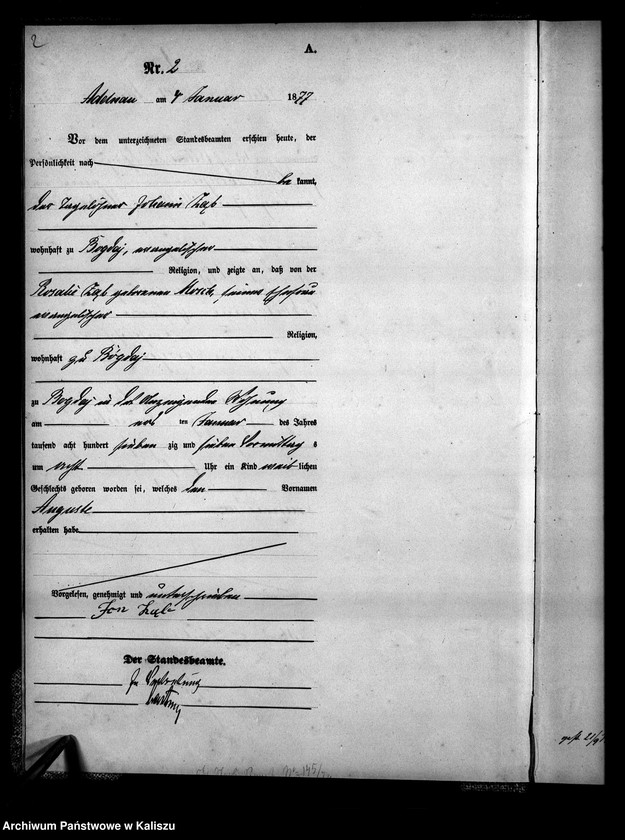 2
A.
Nr. 2
Adelnau am 4 Januar 1877
Vor dem unterzeichneten Standesbeamten erschien heute, der
Persönlichkeit nach
be kannt,
der Tagelöhner Johann
wohnhaft zu Bogdaj, evangelischer
Religion, und zeigte an, daß von der
Rosalie geborenen seiner Ehefrau
evangelischer
Religion,
wohnhaft zu Bogdaj
zu Bogdaj in der Wohnung
am ten Januar des Jahres
tausend acht hundert sieben zig und sieben Vormittag s
um acht Uhr ein Kind weib lichen
Geschlechts geboren worden sei, welches den Vornamen
Auguste
erhalten habe
Vorgelesen, genehmigt und unterschrieben
Der Standesbeamte.
In Vertretung
Archiwum Państwowe w Kaliszu